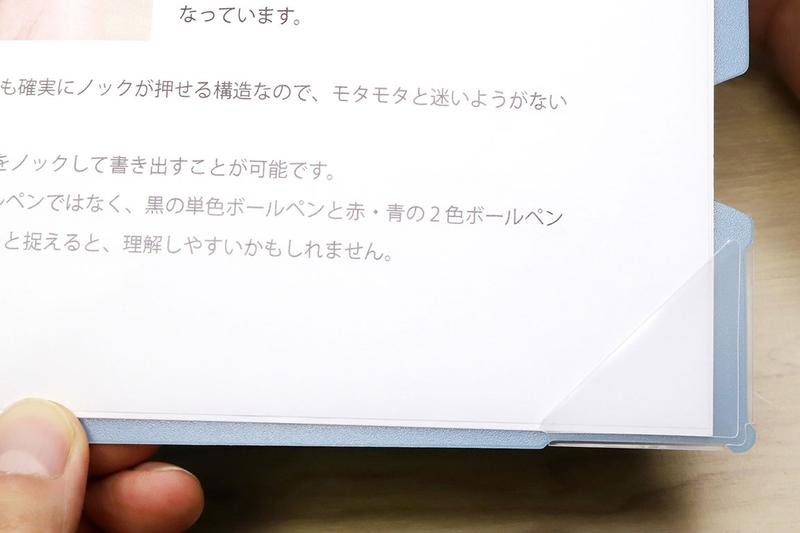 なっています。
も確実にノックが押せる構造なので、モタモタと迷いようがない
をノックして書き出すことが可能です。
ルペンではなく、黒の単色ボールペンと赤・青の2色ボールペン
と捉えると、理解しやすいかもしれません。